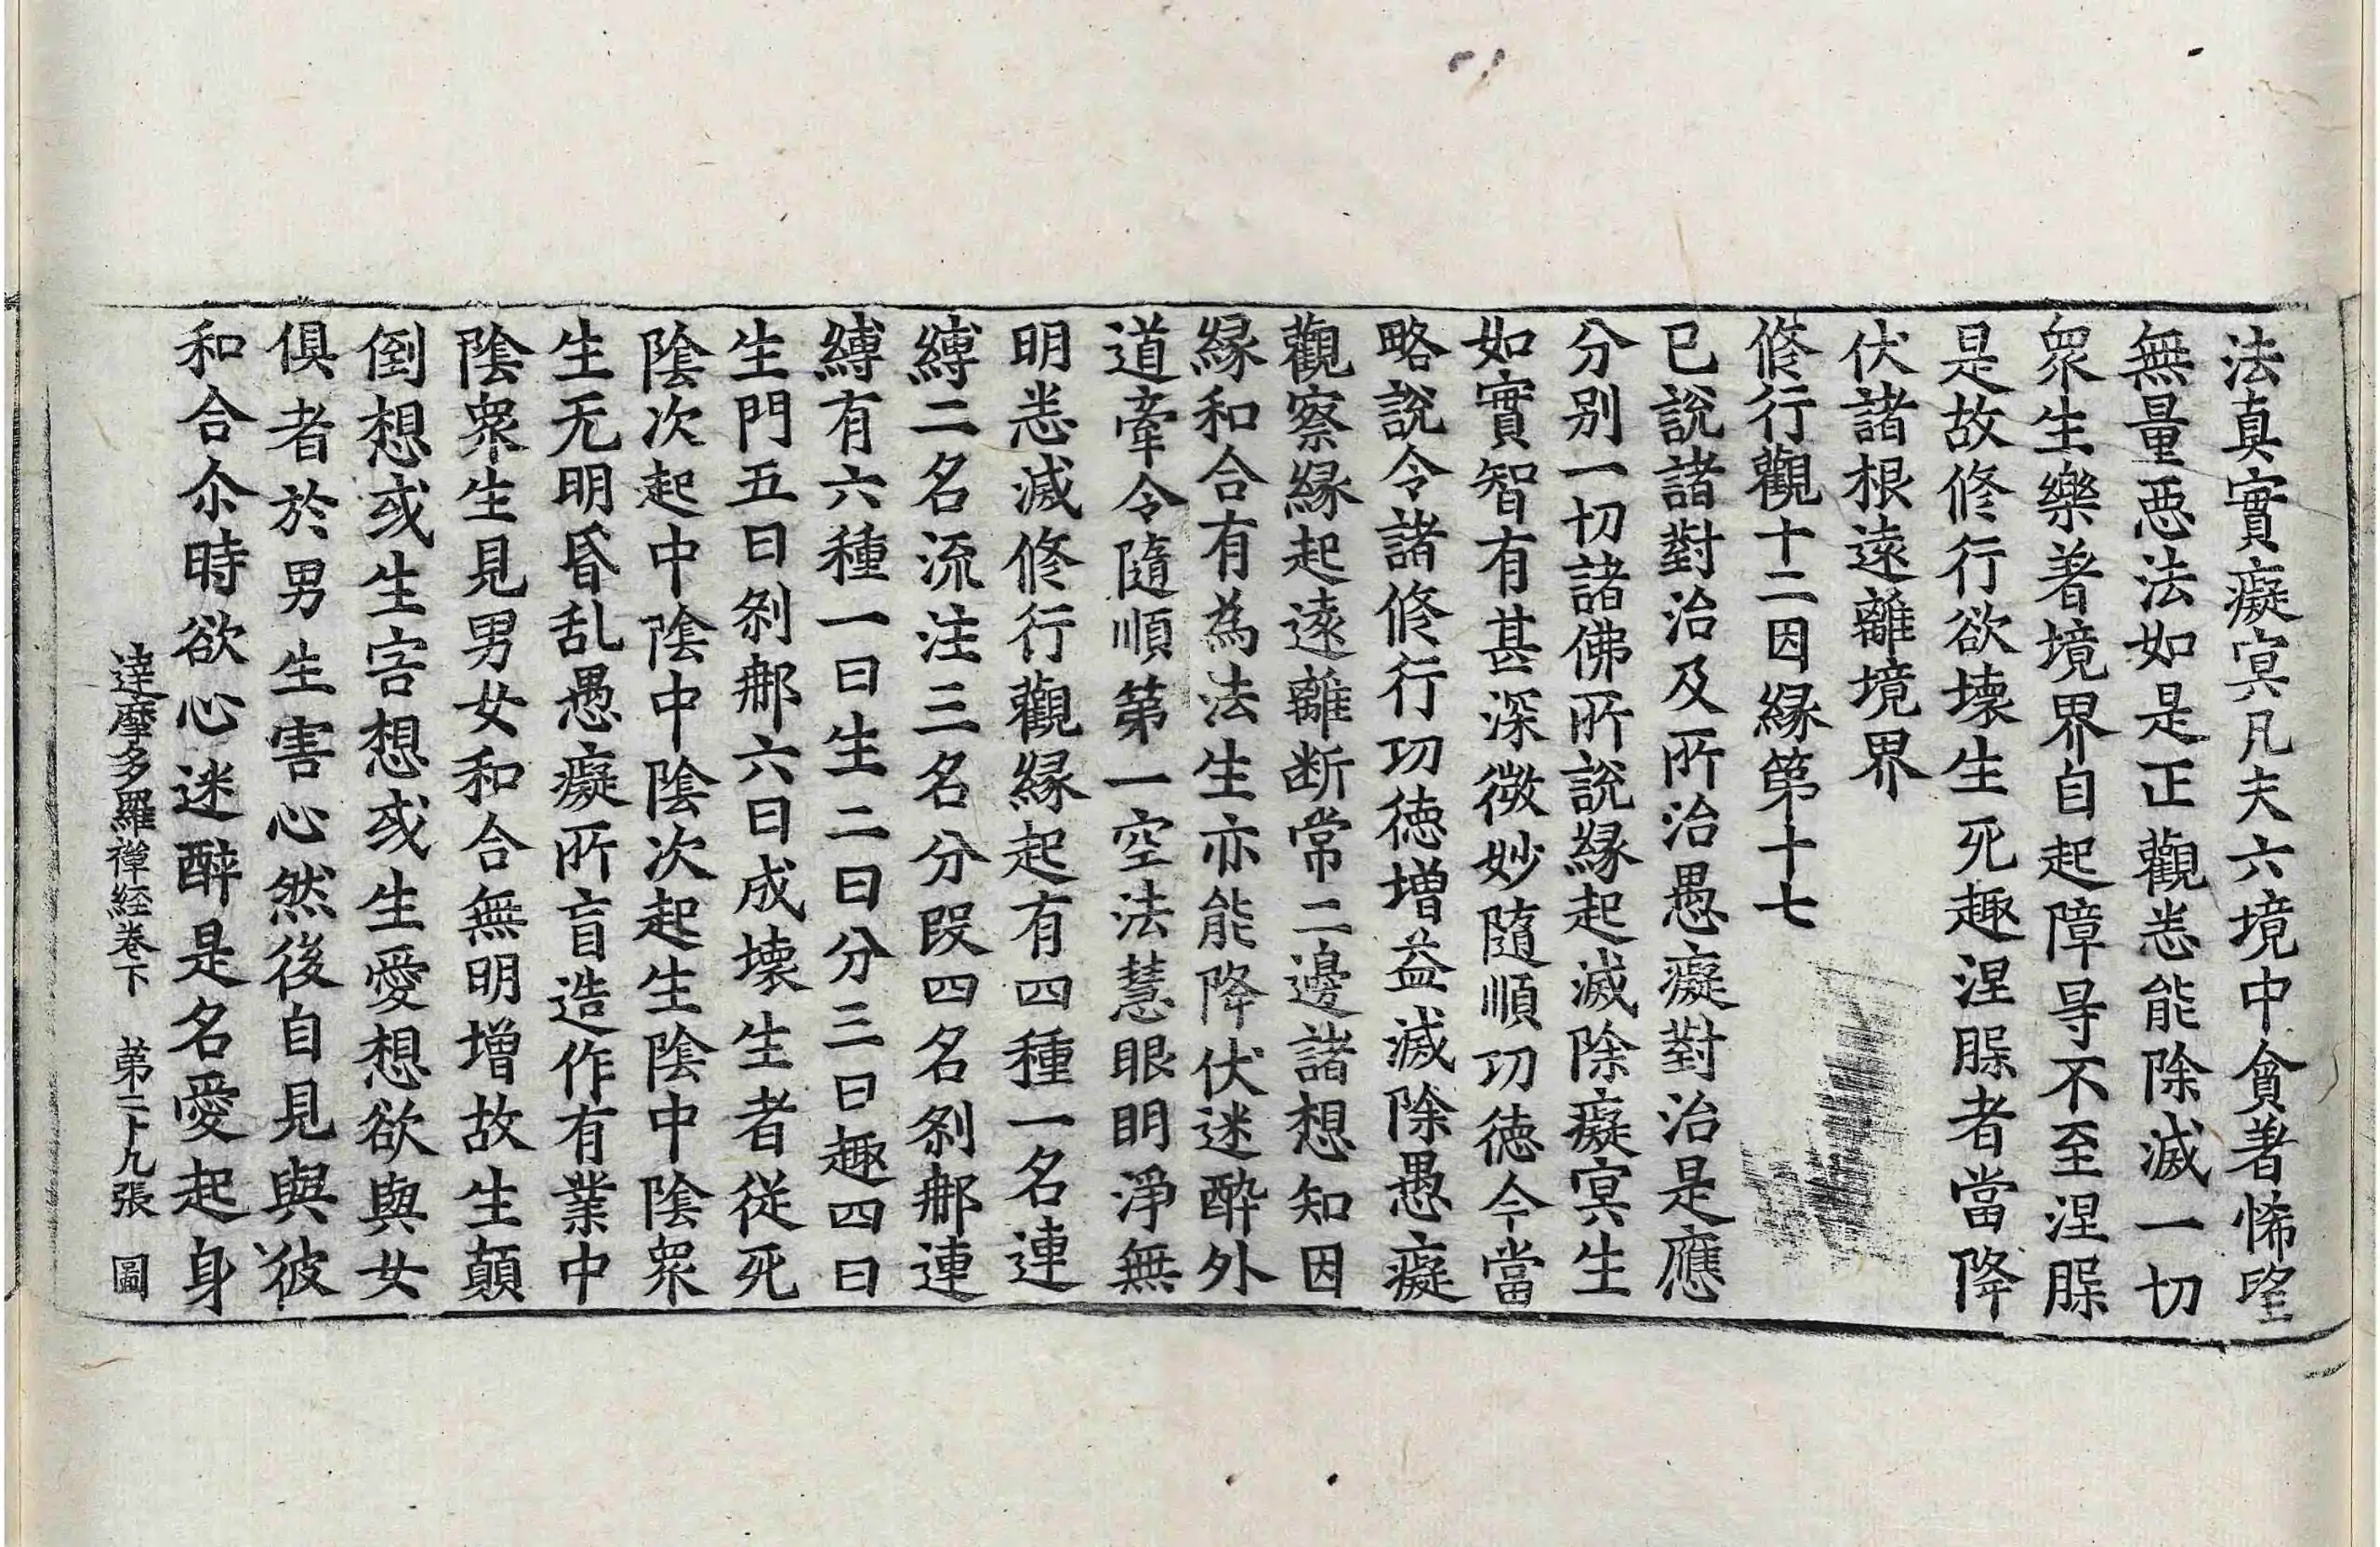 法真實癡冥凡夫六境中貪著悕望
無量惡法如是正觀悉能除滅一切
眾生樂著境界自起障㝵不至涅槃
是故修行欲壞生死趣涅槃者當降
伏諸根遠離境界
修行觀十二因緣第十七
已說諸對治及所治愚癡對治是應
分別一切諸佛所說緣起滅除癡冥生
如實智有甚深微妙隨順功德今當
略說令諸修行功德增益滅除愚癡
觀察緣起遠離断常二邊諸想知因
緣和合有為法生亦能降伏迷醉外
道牽令隨順第一空法慧眼明淨無
明悉滅修行觀緣起有四種一名連
縛二名流注三名分段四名剎那連
縛有六種一曰生二曰分三曰趣四曰
生門五曰剎那六曰成壞生者從死
陰次起中陰中陰次起生陰中陰眾
生无明昏乱愚癡所盲造作有業中
陰眾生見男女和合無明增故生顛
倒想或生害想或生愛想欲與女
俱者於男生害心然後自見與彼
和合尒時欲心迷醉是名愛起身
達摩多羅禪經卷下 第二十九張 圖